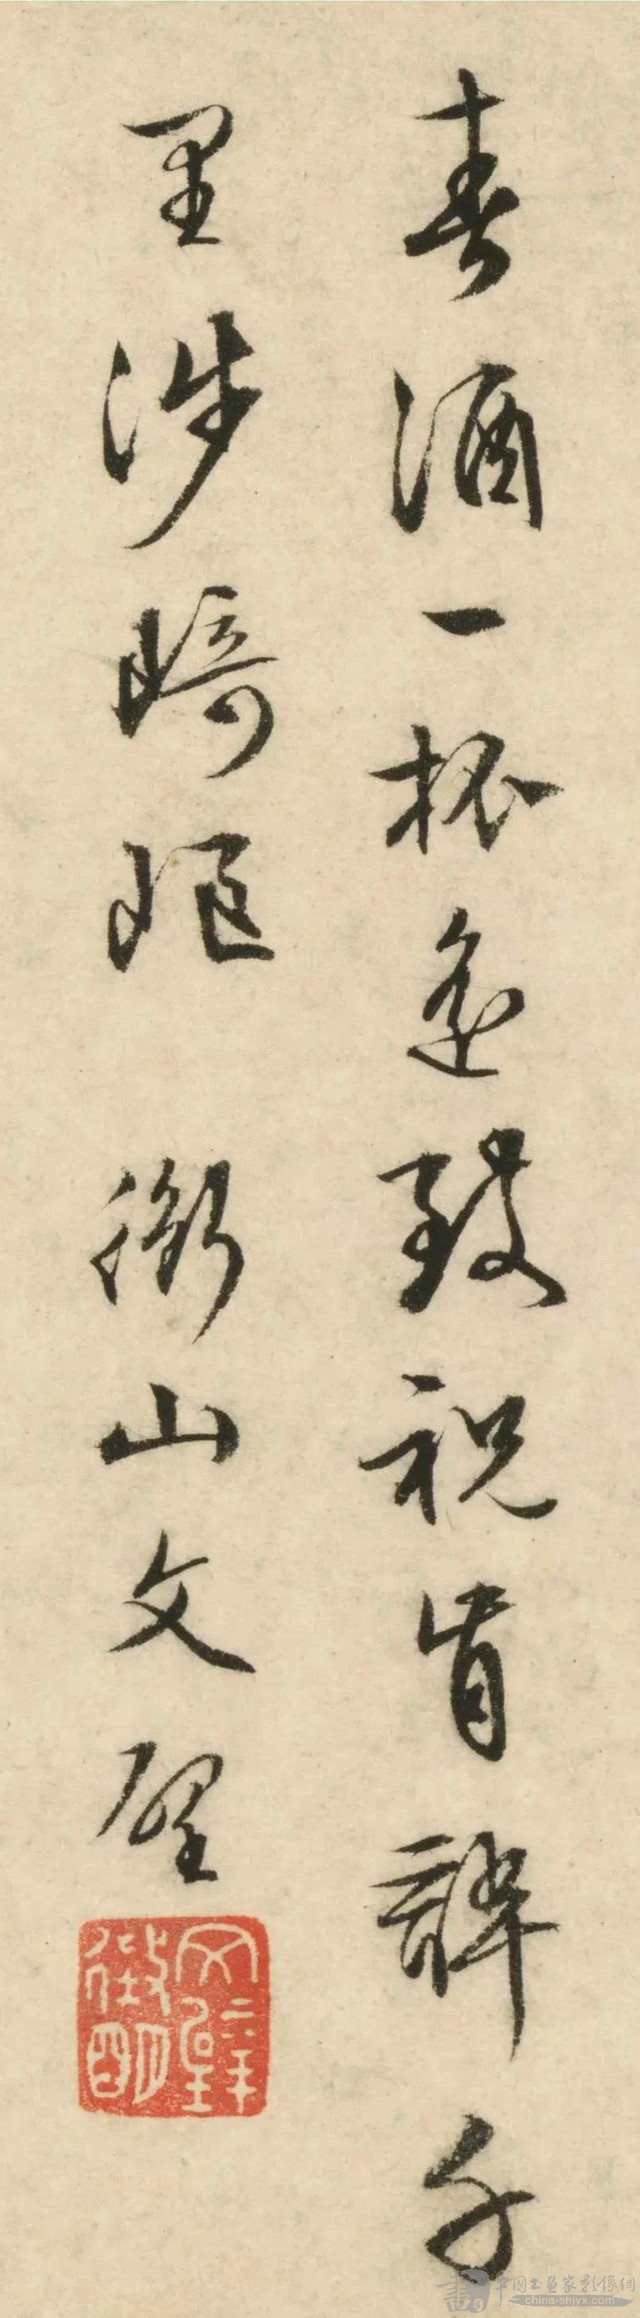 春酒一杯遥致祝肯辞千
里涉崎岖 衡山文壁
文壁徵明
中国书画家影像网
china-shjyx.com